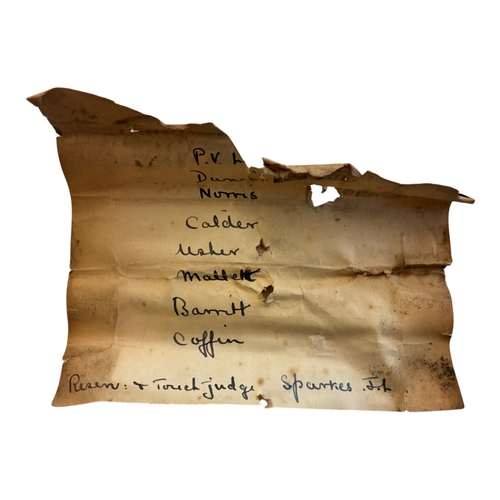 P.V.
Norris
Calder
Usher
Mallett
Barritt
Coffin
Reserv: & Touch judge Sparkes